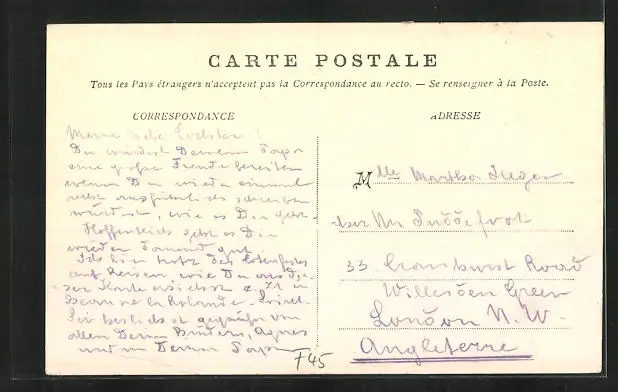 CARTE POSTALE
Tous les Pays étrangers n'acceptent pas la Correspondance au recto. — Se renseigner à la Poste.
CORRESPONDANCE
ADRESSE
Meine liebe Tochter!
Du würdest Deinem Papa
eine große Freude bereiten
wenn Du wieder einmal
recht ausführlich schreiben
würdest, wie es Dir geht.
Hoffentlich geht es Dir
wieder gut.
Ich bin trotz des
auf Reisen, wie Du aus die-
ser Karte z. Zt. in
Beaune la Rolande
Sei herzlichst gegrüßt von
allen Deinen Brüdern, Agnes
und Deinem Papa
Mlle Martha
bei Mr
33 Road
Willesden Green
London N.W.
Angleterre
745